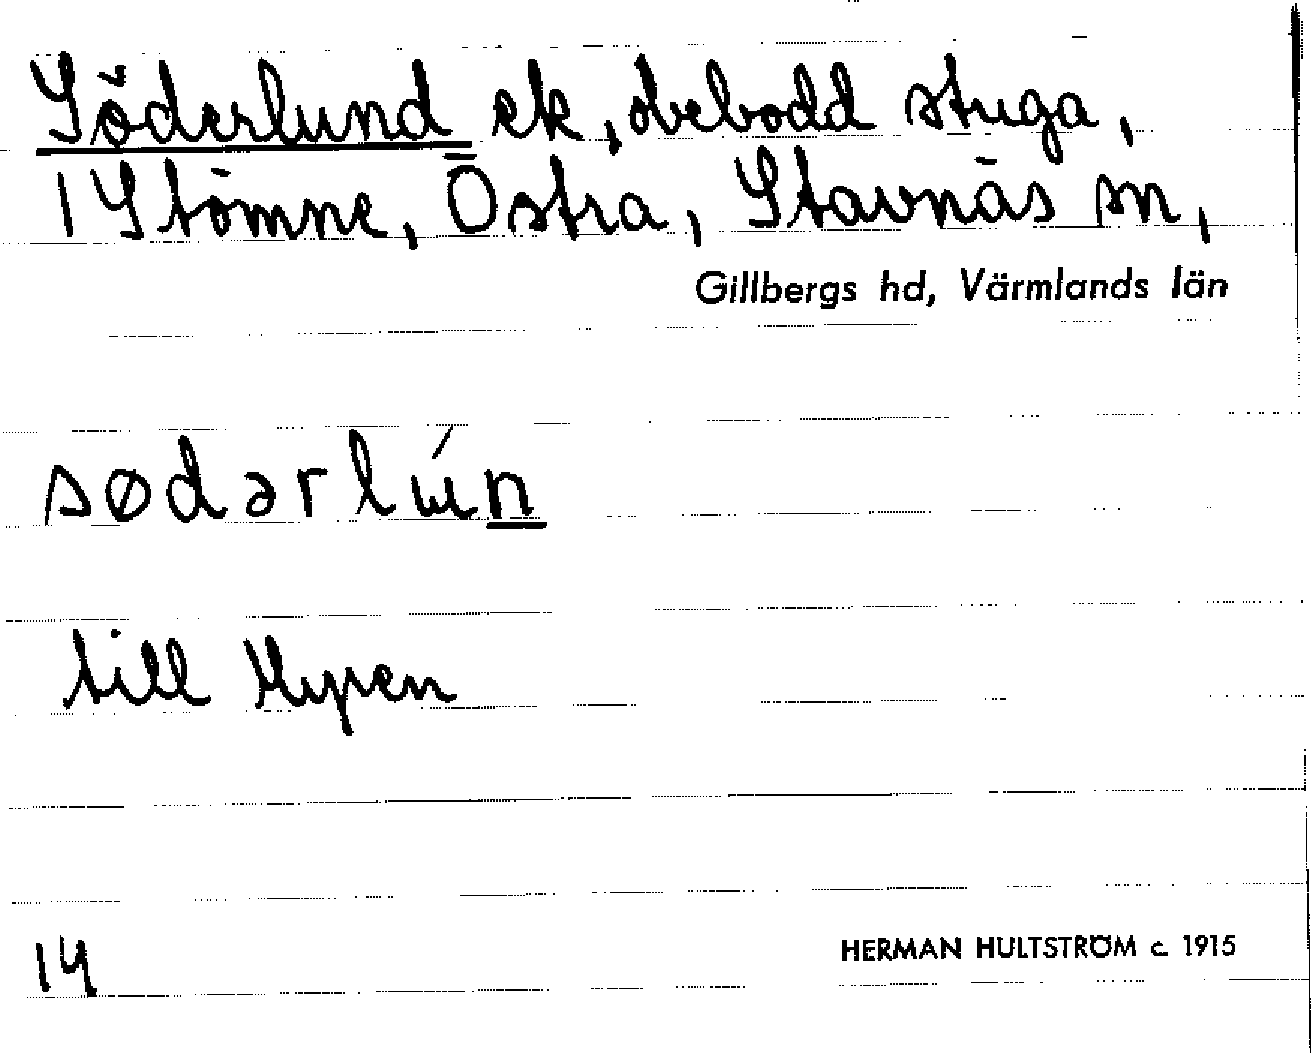 Söderlund ek, obebodd stuga,
1 Stömne, Östra, Stavnäs sn,
Gillbergs hd, Värmlands län
sødərlún
till Hypen
14
HERMAN HULTSTRÖM c. 1915